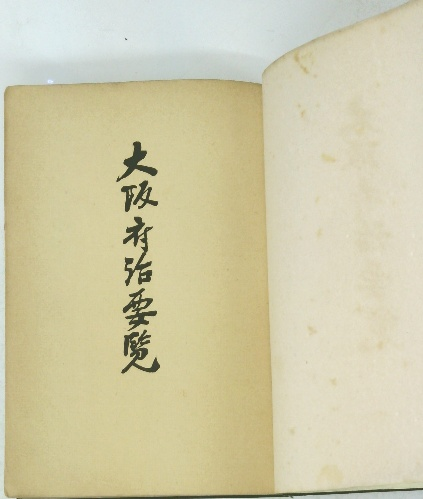 大阪府治要覧